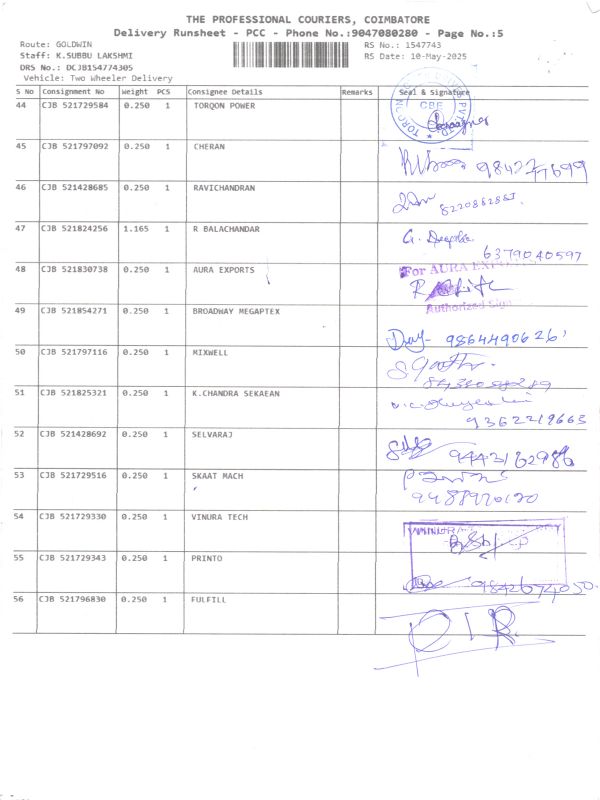 THE PROFESSIONAL COURIERS, COIMBATORE
Delivery Runsheet - PCC - Phone No.:9047080280 - Page No.:5
Route: GOLDWIN RS No.: 1547743
Staff: K.SUBBU LAKSHMI RS Date: 10-May-2025
DRS No.: DCJB154774305
Vehicle: Two Wheeler Delivery
S No Consignment No Weight PCS Consignee Details Remarks Seal & Signature
44 CJB 521729584 0.250 1 TORQON POWER
CBE
45 CJB 521797092 0.250 1 CHERAN
46 CJB 521428685 0.250 1 RAVICHANDRAN
47 CJB 521824256 1.165 1 R BALACHANDAR G. Deepika
6379040597
48 CJB 521830738 0.250 1 AURA EXPORTS For AURA
Authorized
49 CJB 521854271 0.250 1 BROADWAY MEGAPTEX
9864490626
50 CJB 521797116 0.250 1 MIXWELL
51 CJB 521825321 0.250 1 K.CHANDRA SEKAEAN
9362219663
52 CJB 521428692 0.250 1 SELVARAJ
9443162986
53 CJB 521729516 0.250 1 SKAAT MACH
54 CJB 521729330 0.250 1 VINURA TECH
55 CJB 521729343 0.250 1 PRINTO
9842674050
56 CJB 521796830 0.250 1 FULFILL